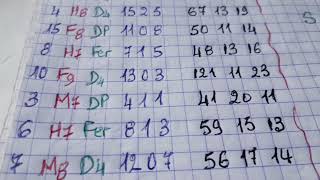 4 H8 D4 1525 67 13 19
15 F8 DP 1108 50 11 14
8 H7 Fer 715 48 13 16
10 F9 D4 1303 121 11 23
3 M7 DP 411 41 20 11
6 H7 Fer 813 59 15 13
7 M8 D4 1207 56 17 14